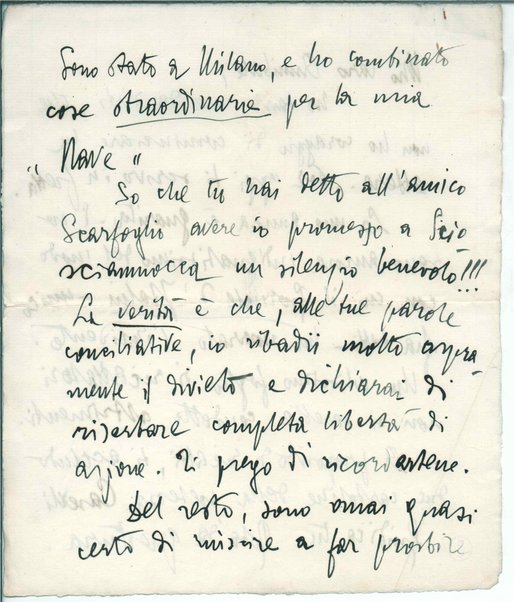 Sono stato a Milano, e ho combinato
cose straordinarie per la mia
"Nave"
So che tu hai detto all'amico
Scarfoglio avere io promesso a Scio-
sciamnocca un silenzio benevolo!!!
La verità è che, alle tue parole
conciliative, io ribadii molto aspra-
mente il divieto e dichiarai di
riserbare completa libertà di
azione. Ti prego di ricordartene.
Del resto, sono omai quasi
certo di riuscire a far proibire